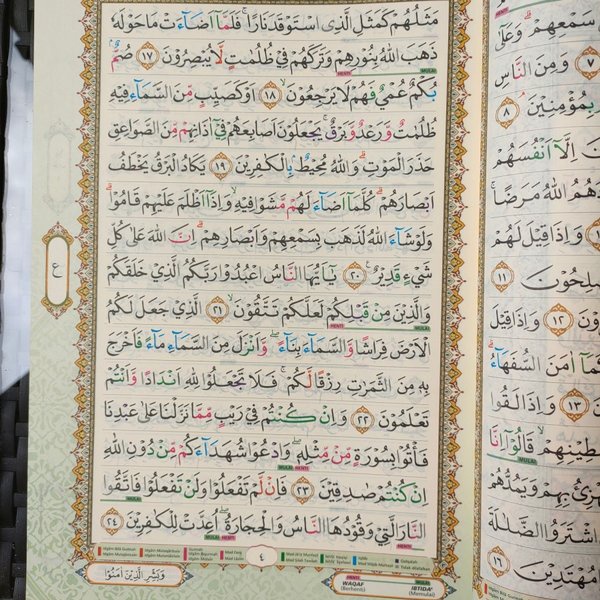 مَثَلُهُمْ كَمَثَلِ الَّذِى اسْتَوْقَدَ نَارًا ۚ فَلَمَّآ اَضَاۤءَتْ مَا حَوْلَهٗ
ذَهَبَ اللّٰهُ بِنُوْرِهِمْ وَتَرَكَهُمْ فِيْ ظُلُمٰتٍ لَّا يُبْصِرُوْنَ ١٧ صُمٌّۢ
بُكْمٌ عُمْيٌ فَهُمْ لَا يَرْجِعُوْنَ ۙ ١٨ اَوْ كَصَيِّبٍ مِّنَ السَّمَاۤءِ فِيْهِ
ظُلُمٰتٌ وَّرَعْدٌ وَّبَرْقٌ ۚ يَجْعَلُوْنَ اَصَابِعَهُمْ فِيْٓ اٰذَانِهِمْ مِّنَ الصَّوَاعِقِ
حَذَرَ الْمَوْتِ ۗ وَاللّٰهُ مُحِيْطٌۢ بِالْكٰفِرِيْنَ ١٩ يَكَادُ الْبَرْقُ يَخْطَفُ
اَبْصَارَهُمْ ۗ كُلَّمَآ اَضَاۤءَ لَهُمْ مَّشَوْا فِيْهِ ۙ وَاِذَآ اَظْلَمَ عَلَيْهِمْ قَامُوْا ۗ
وَلَوْ شَاۤءَ اللّٰهُ لَذَهَبَ بِسَمْعِهِمْ وَاَبْصَارِهِمْ ۗ اِنَّ اللّٰهَ عَلٰى كُلِّ
شَيْءٍ قَدِيْرٌ ࣖ ٢٠ يٰٓاَيُّهَا النَّاسُ اعْبُدُوْا رَبَّكُمُ الَّذِيْ خَلَقَكُمْ
وَالَّذِيْنَ مِنْ قَبْلِكُمْ لَعَلَّكُمْ تَتَّقُوْنَ ۙ ٢١ الَّذِيْ جَعَلَ لَكُمُ
الْاَرْضَ فِرَاشًا وَّالسَّمَاۤءَ بِنَاۤءً ۖ وَّاَنْزَلَ مِنَ السَّمَاۤءِ مَاۤءً فَاَخْرَجَ
بِهٖ مِنَ الثَّمَرٰتِ رِزْقًا لَّكُمْ ۚ فَلَا تَجْعَلُوْا لِلّٰهِ اَنْدَادًا وَّاَنْتُمْ
تَعْلَمُوْنَ ٢٢ وَاِنْ كُنْتُمْ فِيْ رَيْبٍ مِّمَّا نَزَّلْنَا عَلٰى عَبْدِنَا
فَأْتُوْا بِسُوْرَةٍ مِّنْ مِّثْلِهٖ ۖ وَادْعُوْا شُهَدَاۤءَكُمْ مِّنْ دُوْنِ اللّٰهِ
اِنْ كُنْتُمْ صٰدِقِيْنَ ٢٣ فَاِنْ لَّمْ تَفْعَلُوْا وَلَنْ تَفْعَلُوْا فَاتَّقُوا
النَّارَ الَّتِيْ وَقُوْدُهَا النَّاسُ وَالْحِجَارَةُ ۖ اُعِدَّتْ لِلْكٰفِرِيْنَ ٢٤
ع
٤
وَبَشِّرِ الَّذِيْنَ اٰمَنُوْا
WAQAF (Berhenti)
IBTIDA' (Memulai)
سَمْعِهِمْ ۗ وَعَلٰٓى
٧ وَمِنَ النَّاسِ
بِمُؤْمِنِيْنَ ۘ ٨
اِلَّآ اَنْفُسَهُمْ
اللّٰهُ مَرَضًا ۚ
وَاِذَا قِيْلَ لَهُمْ
١١
١٢ وَاِذَا قِيْلَ
اٰمَنَ السُّفَهَاۤءُ ۗ
١٣ وَاِذَا لَقُوا
قَالُوْٓا اِنَّا
بِهِمْ وَيَمُدُّهُمْ
اشْتَرَوُا الضَّلٰلَةَ
مُهْتَدِيْنَ ١٦